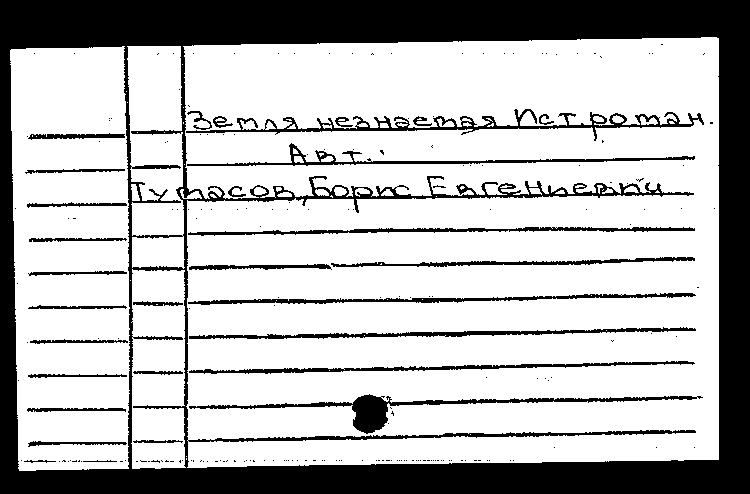 Земля незнаемая Ист.роман.
Авт.:
Тумасов, Борис Евгеньевич